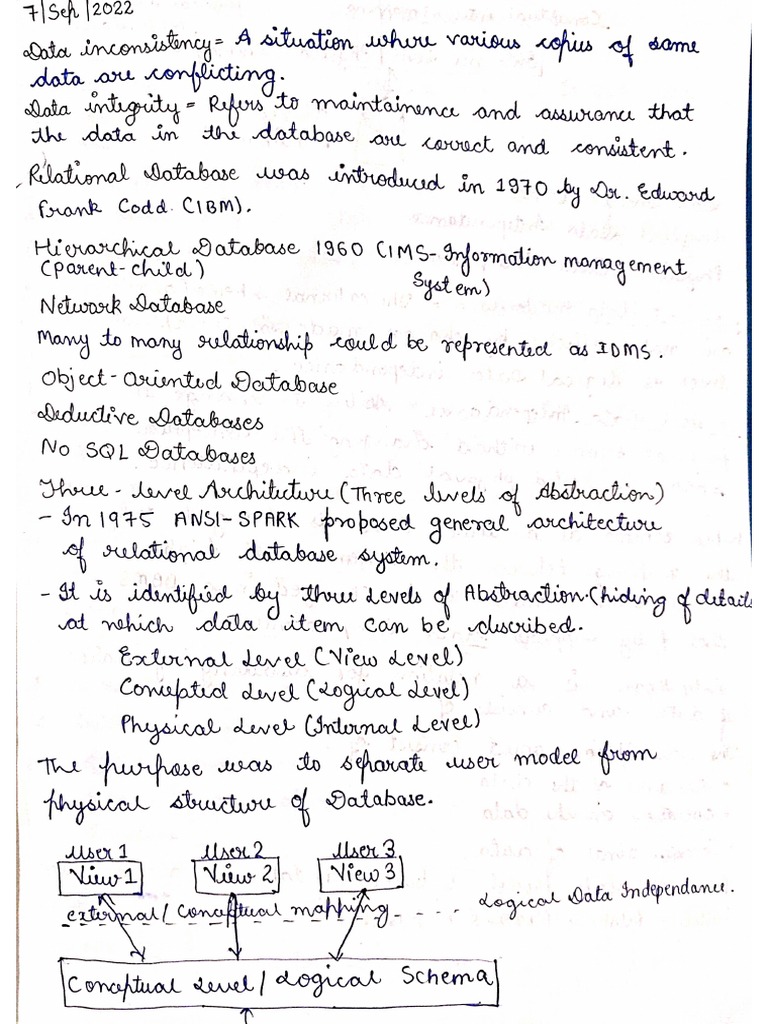 7/Sep/2022
Data inconsistency = A situation where various copies of same
data are conflicting.
Data integrity = Refers to maintainence and assurance that
the data in the database are correct and consistent.
Relational Database was introduced in 1970 by Dr. Edward
Frank Codd. (IBM).
Hierarchical Database 1960 (IMS-Information management
(parent-child) System)
Network Database
Many to many relationship could be represented as IDMS.
Object-oriented Database
Deductive Databases
No SQL Databases
Three-level Architecture (Three levels of Abstraction)
- In 1975 ANSI-SPARK proposed general architecture
of relational database system.
- It is identified by three Levels of Abstraction.(hiding of details
at which data item can be described.
External Level (View Level)
Concepted Level (Logical Level)
Physical Level (Internal Level)
The purpose was to separate user model from
physical structure of Database.
User 1 User 2 User 3
View 1 View 2 View 3
external/conceptual mapping - - - - Logical Data Independance.
Conceptual Level / Logical Schema